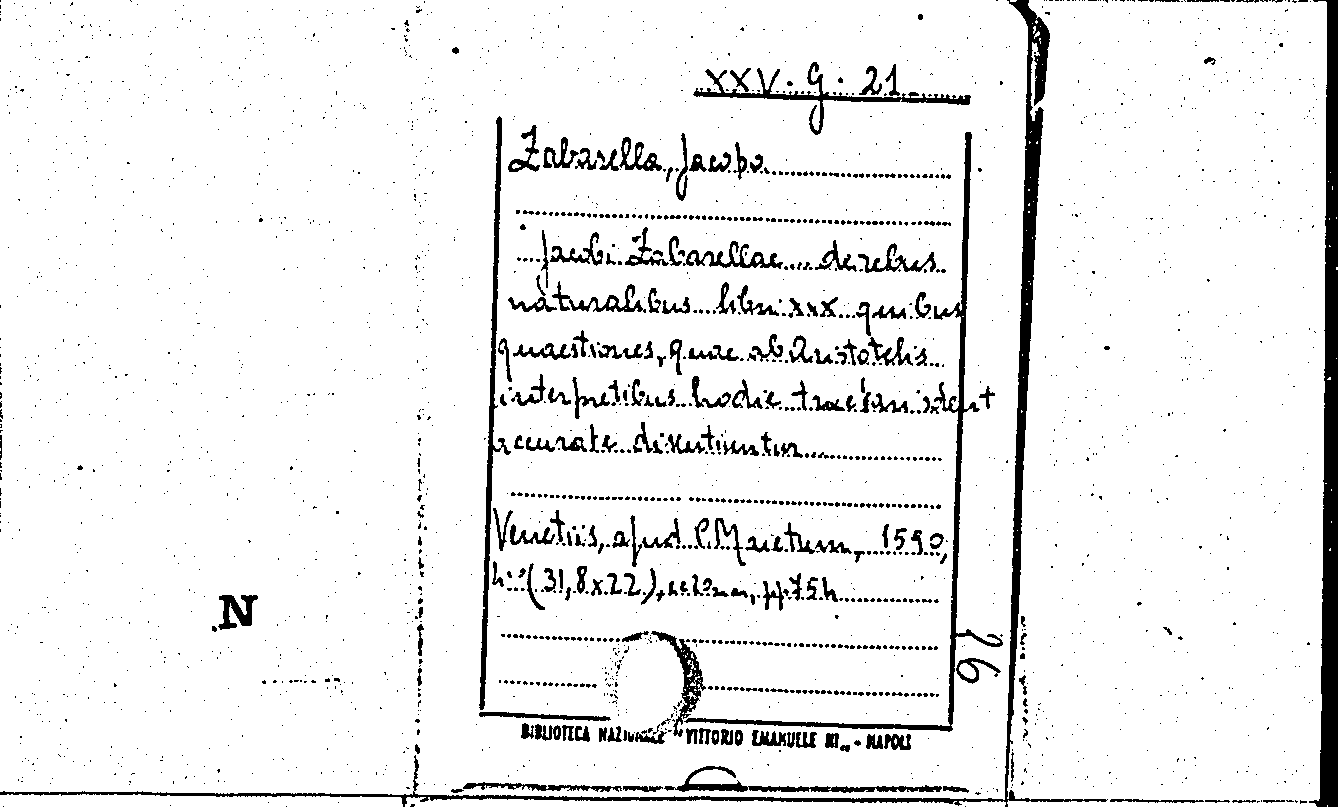 XXV. G. 21
Zabarella, Jacopo
Jacobi Zabarellae ... de rebus
naturalibus libri xxx quibus
quaestiones, quae ab Aristotelis
interpretibus hodie
accurate discutiuntur
Venetiis, apud P. Maietum, 1590,
4° (31,8x22), pp 754
26
BIBLIOTECA NAZIONALE "VITTORIO EMANUELE III" - NAPOLI
N